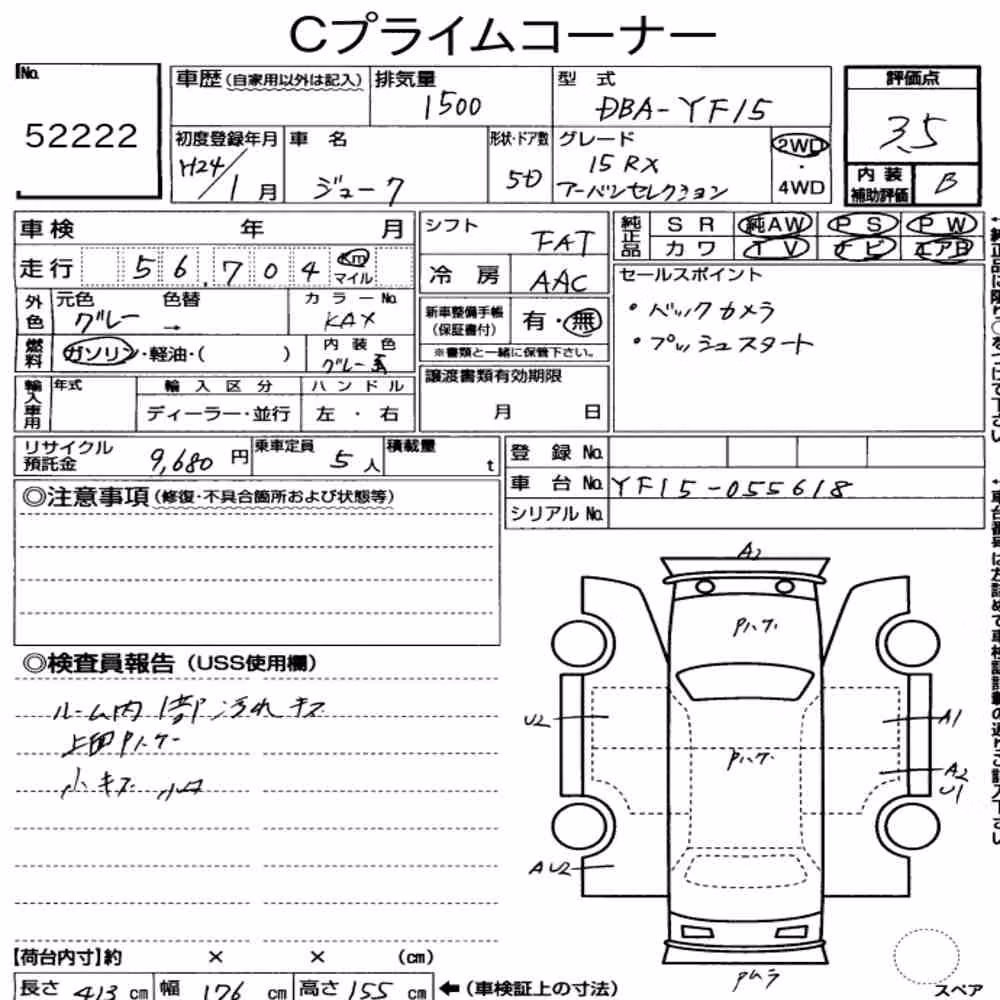 Cプライムコーナー
No.
52222
車歴(自家用以外は記入)
排気量
1500
型 式
DBA-YF15
評価点
3.5
初度登録年月
H24/1月
車 名
ジューク
形状・ドア数
5D
グレード
15RX
アーバンセレクション
2WD
・
4WD
内装補助評価
B
車検 年 月
走行 56,704 Km マイル
シフト
FAT
冷 房
AAC
純正品
SR 純AW PS PW
カワ TV ナビ エアB
セールスポイント
・バックカメラ
・プッシュスタート
外色
元色 色替
グレー →
カラーNo.
KAX
新車整備手帳
(保証書付)
有・無
※書類と一緒に保管下さい。
燃料
ガソリン・軽油・( )
内装色
グレー系
譲渡書類有効期限
月 日
輸入車用
年式
輸入区分
ディーラー・並行
ハンドル
左・右
リサイクル預託金
9,680円
乗車定員
5人
積載量
t
登録No.
車台No. YF15-055618
シリアルNo.
◎注意事項(修復・不具合箇所および状態等)
◎検査員報告(USS使用欄)
ルーム内 1部 汚れ キズ
上面Pハケ
小キズ 小凹
A2
Pハケ
U2
A1
Pハケ
A2
U1
AU2
Pムラ
スペア
【荷台内寸】約 × × (cm)
長さ 413 cm 幅 176 cm 高さ 155 cm ←(車検証上の寸法)